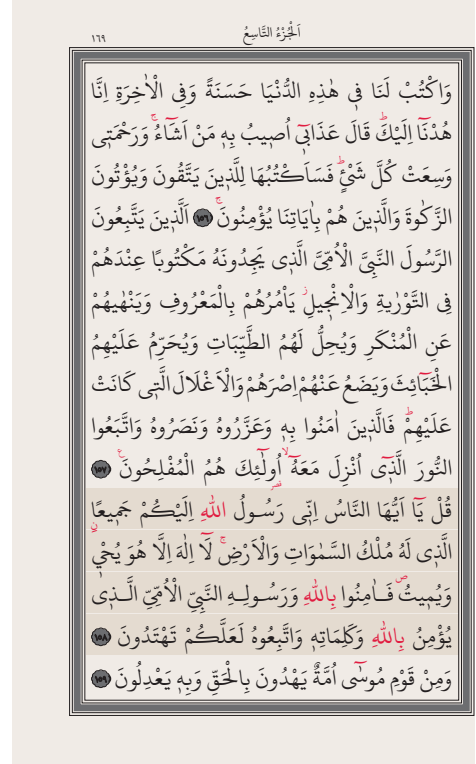 اَلْجُزْءُ التَّاسِعُ
١٦٩
وَاكْتُبْ لَنَا فٖى هٰذِهِ الدُّنْيَا حَسَنَةً وَفِى الْاٰخِرَةِ اِنَّا
هُدْنَٓا اِلَيْكَۜ قَالَ عَذَابٖٓى اُصٖيبُ بِهٖ مَنْ اَشَٓاءُۚ وَرَحْمَتٖى
وَسِعَتْ كُلَّ شَىْءٍۜ فَسَاَكْتُبُهَا لِلَّذٖينَ يَتَّقُونَ وَيُؤْتُونَ
الزَّكٰوةَ وَالَّذٖينَ هُمْ بِاٰيَاتِنَا يُؤْمِنُونَۚ ١٥٦ اَلَّذٖينَ يَتَّبِعُونَ
الرَّسُولَ النَّبِىَّ الْاُمِّىَّ الَّذٖى يَجِدُونَهُ مَكْتُوبًا عِنْدَهُمْ
فِى التَّوْرٰيةِ وَالْاِنْجٖيلِؗ يَاْمُرُهُمْ بِالْمَعْرُوفِ وَيَنْهٰيهُمْ
عَنِ الْمُنْكَرِ وَيُحِلُّ لَهُمُ الطَّيِّبَاتِ وَيُحَرِّمُ عَلَيْهِمُ
الْخَبَٓائِثَ وَيَضَعُ عَنْهُمْ اِصْرَهُمْ وَالْاَغْلَالَ الَّتٖى كَانَتْ
عَلَيْهِمْۜ فَالَّذٖينَ اٰمَنُوا بِهٖ وَعَزَّرُوهُ وَنَصَرُوهُ وَاتَّبَعُوا
النُّورَ الَّذٖٓى اُنْزِلَ مَعَهُٓۙ اُو۬لٰٓئِكَ هُمُ الْمُفْلِحُونَ۟ ١٥٧
قُلْ يَٓا اَيُّهَا النَّاسُ اِنّٖى رَسُولُ اللّٰهِ اِلَيْكُمْ جَمٖيعًاۨ
الَّذٖى لَهُ مُلْكُ السَّمٰوَاتِ وَالْاَرْضِۚ لَٓا اِلٰهَ اِلَّا هُوَ يُحْيٖ
وَيُمٖيتُࣕ فَاٰمِنُوا بِاللّٰهِ وَرَسُولِهِ النَّبِىِّ الْاُمِّىِّ الَّذٖى
يُؤْمِنُ بِاللّٰهِ وَكَلِمَاتِهٖ وَاتَّبِعُوهُ لَعَلَّكُمْ تَهْتَدُونَ ١٥٨
وَمِنْ قَوْمِ مُوسٰٓى اُمَّةٌ يَهْدُونَ بِالْحَقِّ وَبِهٖ يَعْدِلُونَ ١٥٩